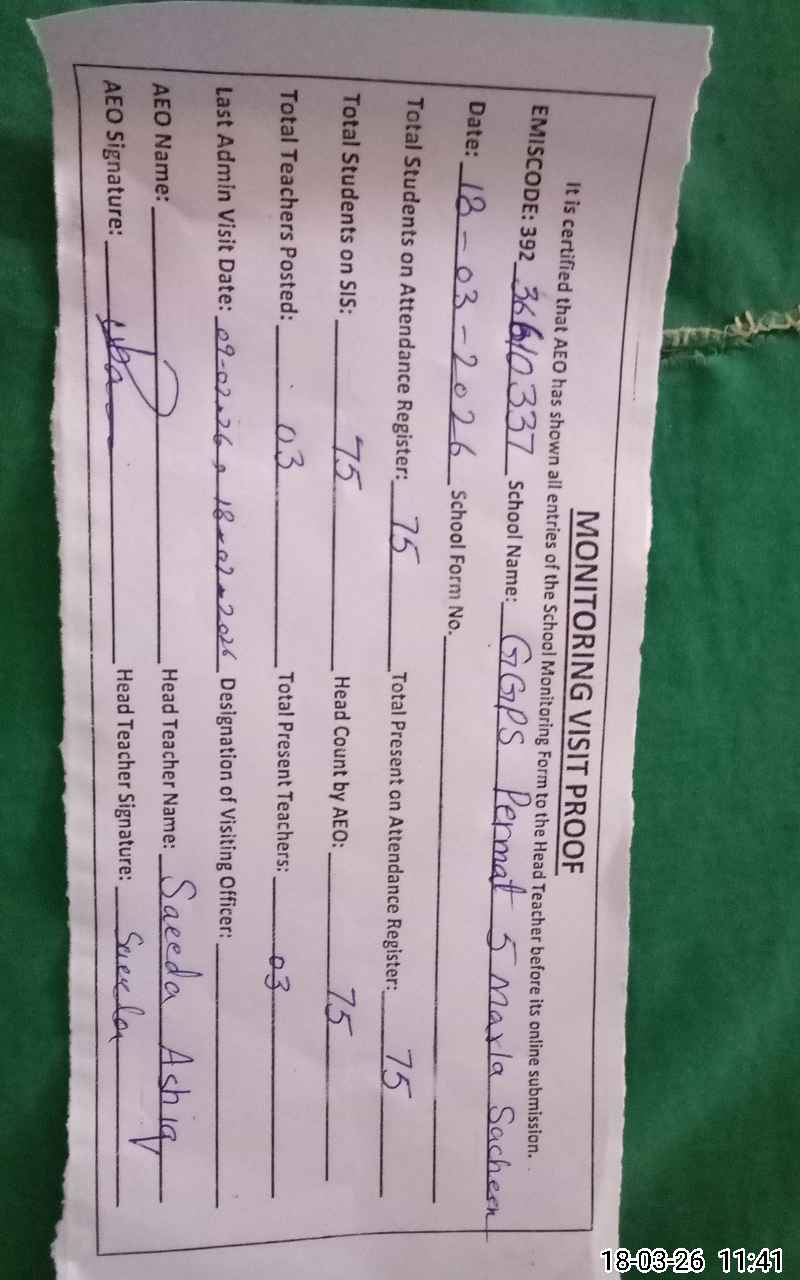 MONITORING VISIT PROOF
It is certified that AEO has shown all entries of the School Monitoring Form to the Head Teacher before its online submission.
EMISCODE: 392 36610337 School Name: GGPS Permat 5 Marla Sacheen
Date: 18-03-2026 School Form No.
Total Students on Attendance Register: 75 Total Present on Attendance Register: 75
Total Students on SIS: 75 Head Count by AEO: 75
Total Teachers Posted: 03 Total Present Teachers: 03
Last Admin Visit Date: 09-02-26, 18-02-2026 Designation of Visiting Officer:
AEO Name: Head Teacher Name: Saeeda Ashiq
AEO Signature: Head Teacher Signature: Saeeda
18-03-26 11:41